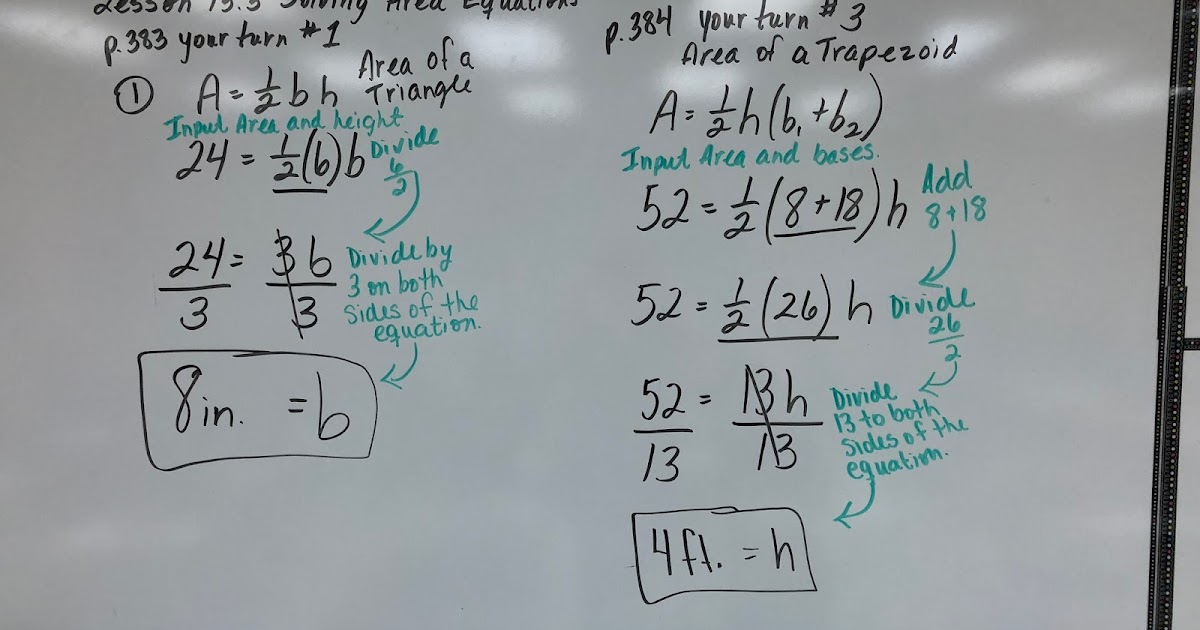 Lesson 13.3 Solving Area Equations
p.383 your turn #1
① A = 1/2 b h Area of a
Triangle
Input Area and height
24 = 1/2 (6) b Divide
6/2
24/3 = 3b/3 Divide by
3 on both
sides of the
equation.
8 in. = b
p.384 your turn #3
Area of a Trapezoid
A = 1/2 h (b₁ + b₂)
Input Area and bases.
52 = 1/2 (8+18) h Add
8+18
52 = 1/2 (26) h Divide
26/2
52/13 = 13h/13 Divide
13 to both
sides of the
equation.
4 ft. = h